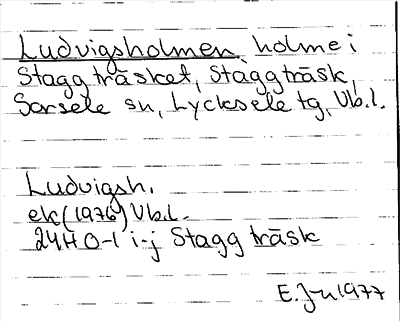 Ludvigsholmen, holme i
Staggträsket, Staggträsk,
Sorsele sn, Lycksele tg, Vb.l.
Ludvigsh.
ek (1976) Vb.l.
24H 0-1 i-j Staggträsk
E. J-n 1977